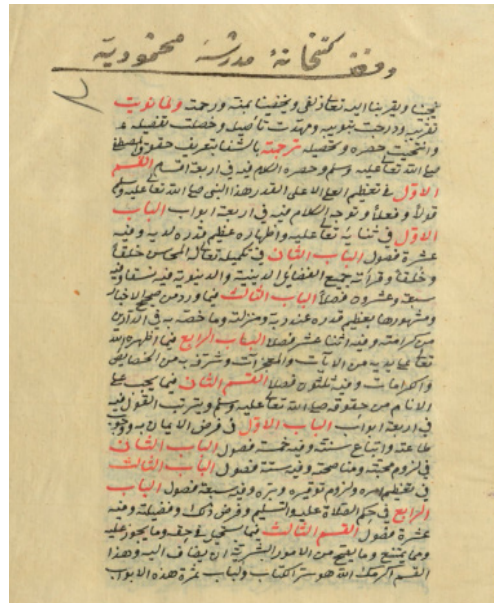 وقف كتبخانهٔ مدرسهٔ محموديه
يحبنا ويقربنا اليه تعالى زلفى ويخصنا بمنه ورحمته ولما نويت
تقريبه ودرجت تبويبه ومهدت تأصيله وخلصت تفصيله
وانتحيت حصره وتحصيله ترجمته بالشفا بتعريف حقوق المصطفى
صلى الله تعالى عليه وسلم وحصر الكلام فيه في اربعة اقسام القسم
الاول في تعظيم العلي الاعلى لقدر هذا النبي صلى الله تعالى عليه وسلم
قولا وفعلا وتوجه الكلام فيه في اربعة ابواب الباب
الاول في ثنائه تعالى عليه واظهاره عظيم قدره لديه وفيه
عشرة فصول الباب الثاني في تكميله تعالى له المحاسن خلقا
وخلقا وقرانه جميع الفضائل الدينية والدنيوية فيه نسقا وفيه
سبعة وعشرون فصلا الباب الثالث فيما ورد من صحيح الاخبار
ومشهورها بعظيم قدره عند ربه ومنزلته وما خصه به في الدارين
من كرامته وفيه اثنا عشر فصلا الباب الرابع فيما اظهره الله
تعالى على يديه من الآيات والمعجزات وشرفه به من الخصايص
والكرامات وفيه ثلثون فصلا القسم الثاني فيما يجب على
الانام من حقوقه صلى الله تعالى عليه وسلم ويترتب القول فيه
في اربعة ابواب الباب الاول في فرض الايمان به ووجوب
طاعته واتباع سنته وفيه خمسة فصول الباب الثاني
في لزوم محبته ومناصحته وفيه ستة فصول الباب الثالث
في تعظيم امره ولزوم توقيره وبره وفيه سبعة فصول الباب
الرابع في حكم الصلاة عليه والتسليم وفرض ذلك وفضيلته وفيه
عشرة فصول القسم الثالث فيما يستحيل في حقه وما يجوز عليه
وما يمتنع وما يصح من الامور البشرية ان يضاف اليه وهذا
القسم اكرمك الله هو سر الكتاب ولباب ثمرة هذه الابواب